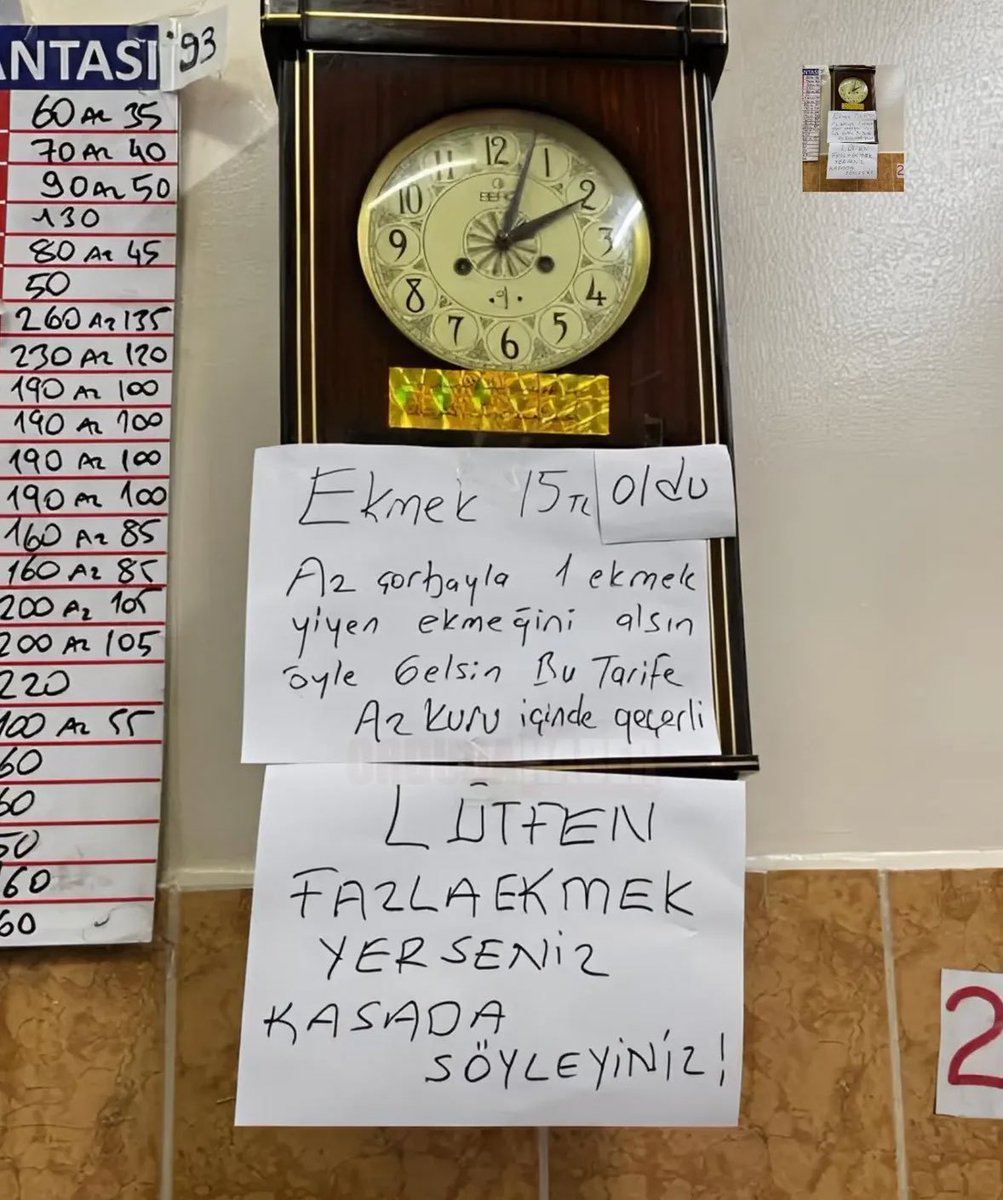 ANTASI '93
60 Az 35
70 Az 40
90 Az 50
130
80 Az 45
50
260 Az 135
230 Az 120
190 Az 100
190 Az 100
190 Az 100
190 Az 100
160 Az 85
160 Az 85
200 Az 105
200 Az 105
220
100 Az 55
60
60
50
60
60
12
1
2
3
4
5
6
7
8
9
10
11
Ekmek 15 TL oldu
Az çorbayla 1 ekmek
yiyen ekmeğini alsın
öyle Gelsin Bu Tarife
Az kuru içinde geçerli
LÜTFEN
FAZLA EKMEK
YERSENİZ
KASADA
SÖYLEYİNİZ!
2